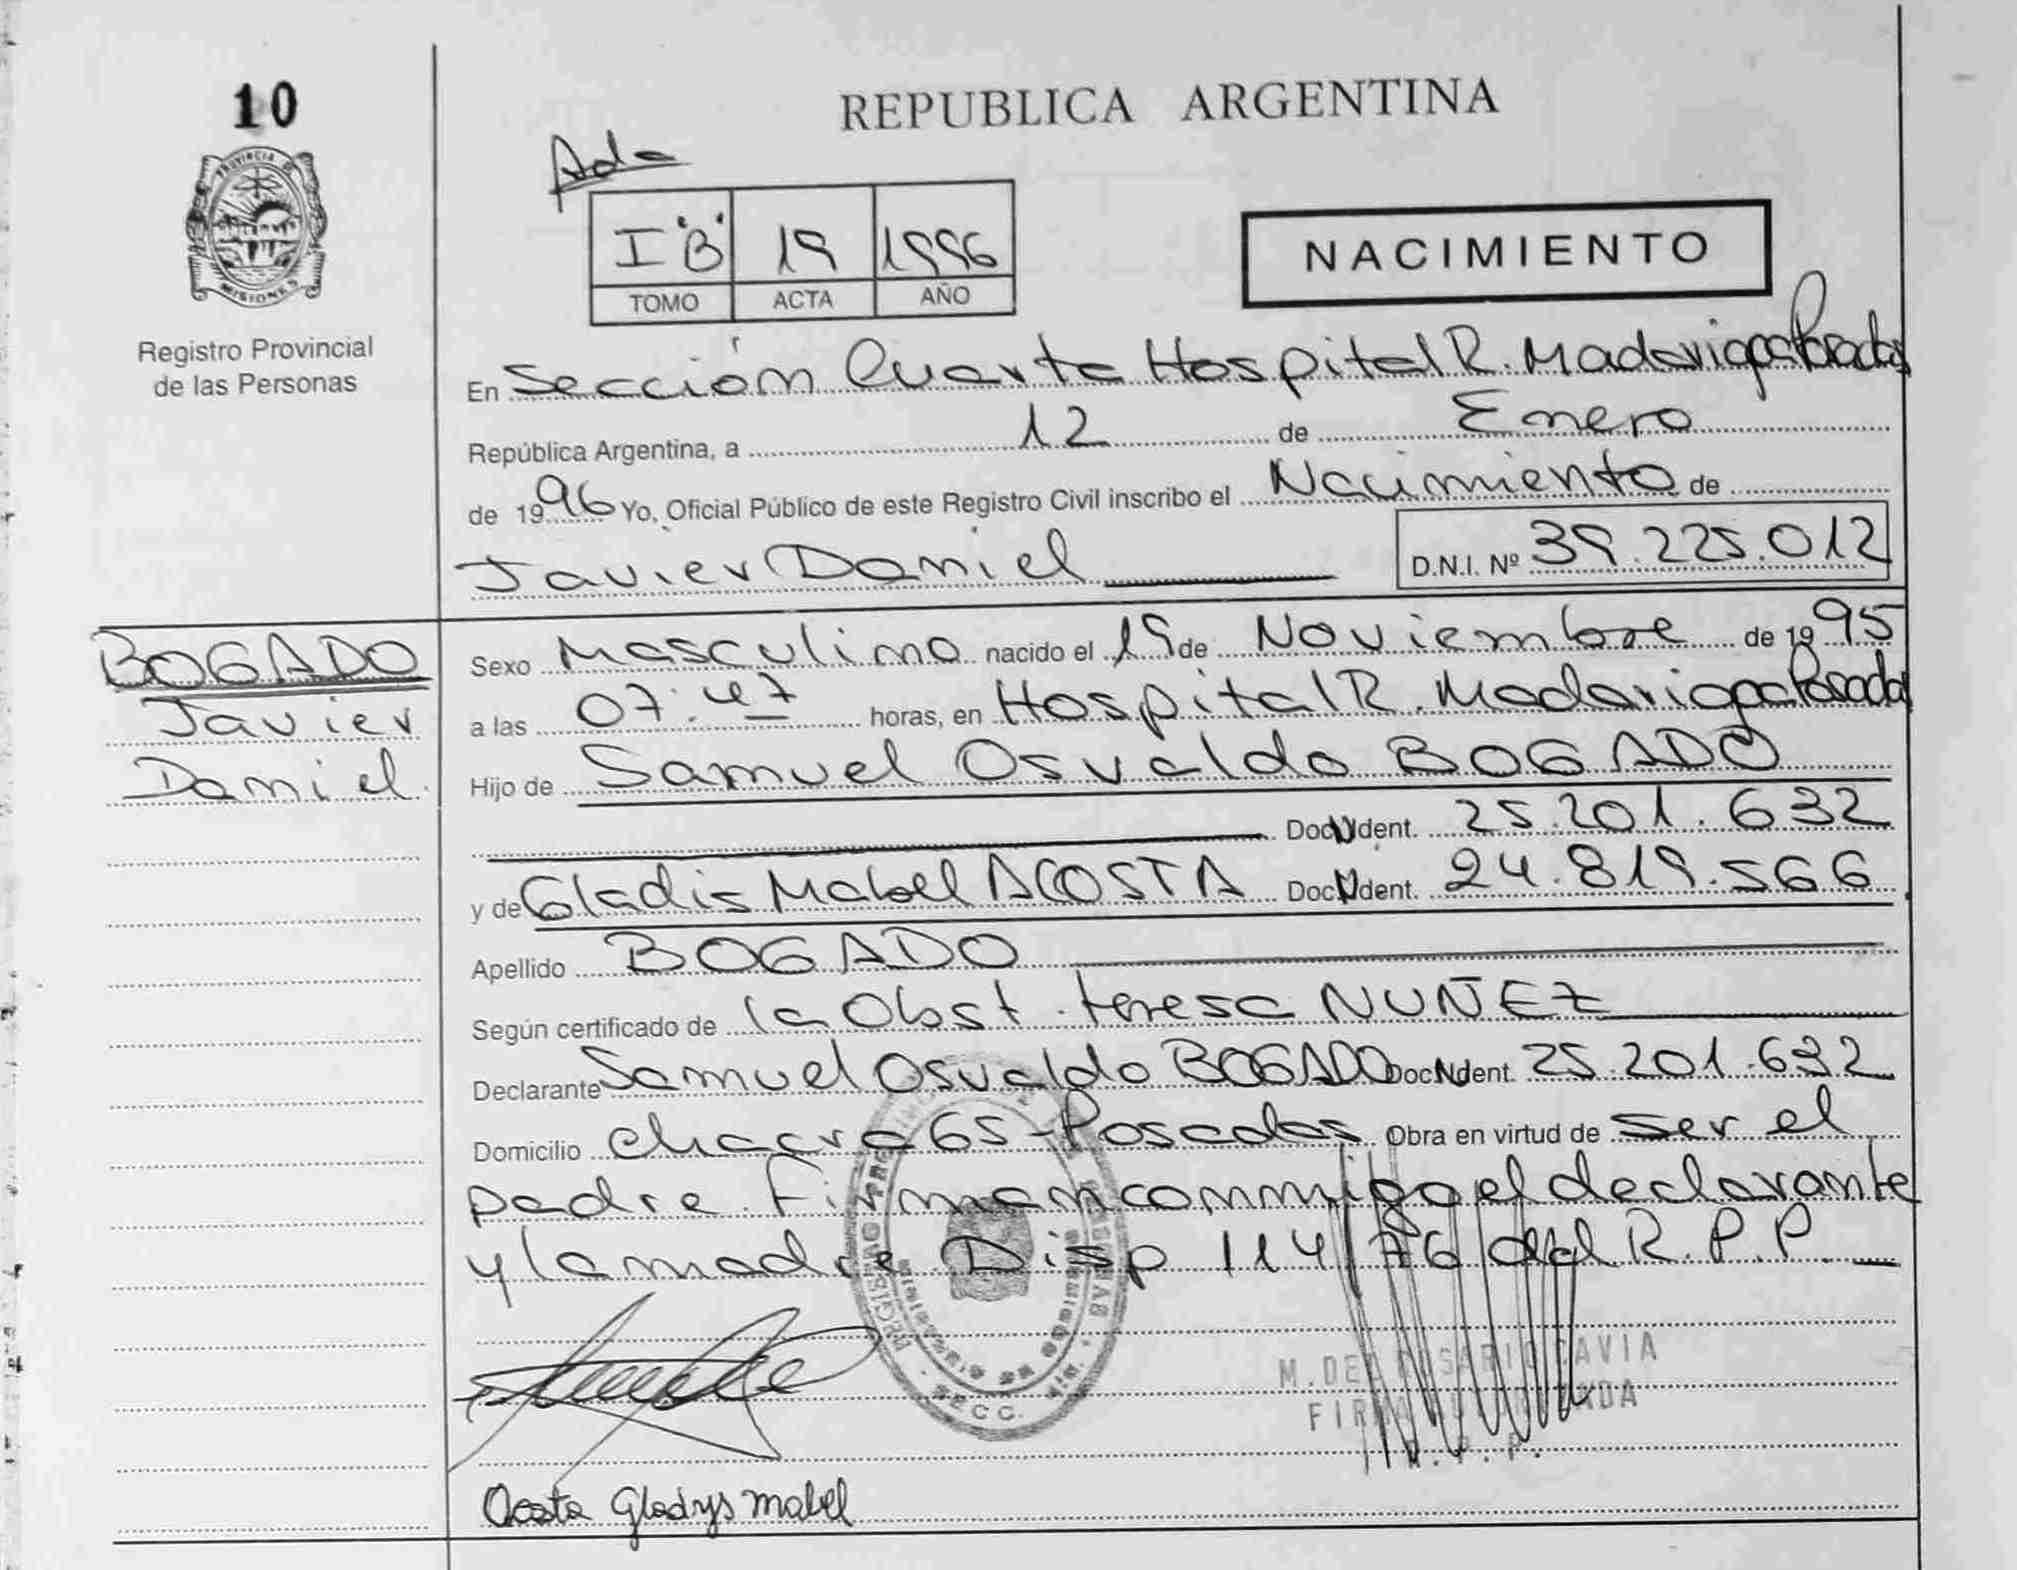 10
REPUBLICA ARGENTINA
Ada
I "B" 19 1996
TOMO ACTA AÑO
NACIMIENTO
PROVINCIA DE
MISIONES
Registro Provincial
de las Personas
En Sección Cuarta Hospital R. Madariaga Posadas
República Argentina, a 12 de Enero
de 1996 Yo, Oficial Público de este Registro Civil inscribo el Nacimiento de
Javier Daniel D.N.I. Nº 39.225.012
BOGADO
Javier
Daniel.
Sexo Masculino nacido el 19 de Noviembre de 1995
a las 07:47 horas, en Hospital R. Madariaga Posadas
Hijo de Samuel Osvaldo BOGADO
Doc. Ident. 25.201.632
y de Gladis Mabel ACOSTA Doc. Ident. 24.819.566
Apellido BOGADO
Según certificado de la Obst. teresa NUÑEZ
Declarante Samuel Osvaldo BOGADO Doc. Ident. 25.201.632
Domicilio Chacra 65 - Posadas Obra en virtud de ser el
padre. Firman conmigo el declarante
y la madre. Disp 114/76 del R.P.P.
M. DEL ROSARIO GAVIA
FIRMA AUTORIZADA
R. P. P.
Acosta Gladys mabel